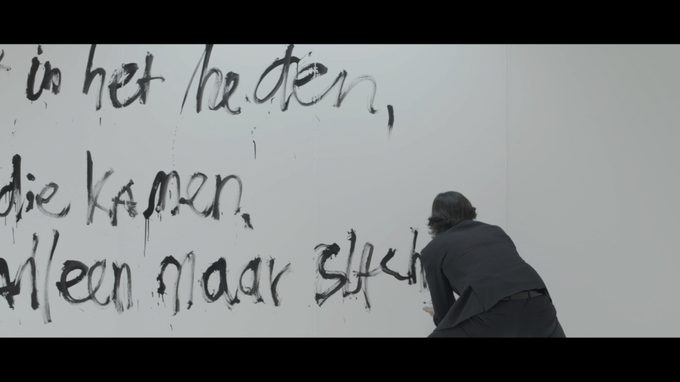 in het heden,
die kamen,
alleen maar slach